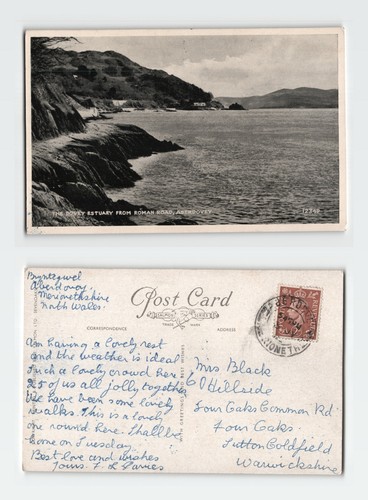 THE DOVEY ESTUARY FROM ROMAN ROAD, ABERDOVEY
Bryntegwel
Aberdovey
Merionethshire
North Wales.
Post Card
CORRESPONDENCE
TRADE MARK
ADDRESS
Am having a lovely rest
and the weather is ideal
Such a lovely crowd here
of us all jolly together
We have been some lovely
walks. This is a lovely
one round here. Shall be
home on Tuesday.
Best love and wishes
Yours. Davies
Miss Black
61 Hillside
Four Oaks Common Rd.
Four Oaks.
Sutton Coldfield
Warwickshire